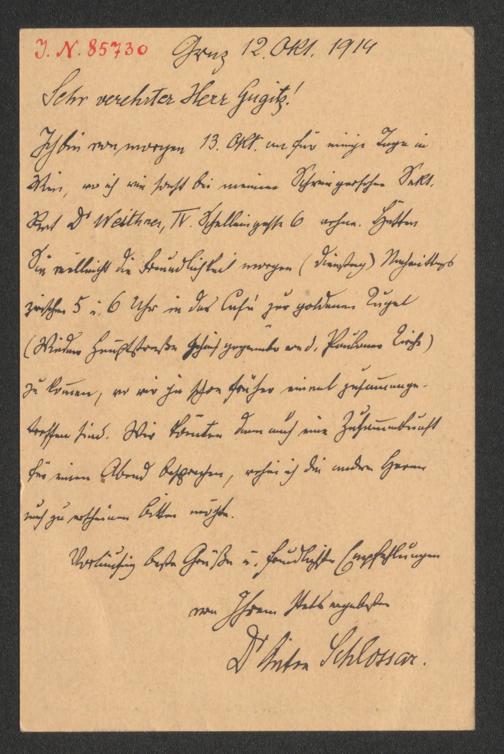 J. N. 85730 Graz 12. Okt. 1914
Sehr verehrter Herr Gugitz!
Ich bin von morgen 13. Okt. an für einige Tage in
Wien, wo ich wie sonst bei meinem Schwiegersohne Sekt.
Rat Dr Weithner, IV. Schelleingasse 6 wohne. Hätten
Sie vielleicht die Freundlichkeit morgen (Dienstag) Nachmittags
zwischen 5 u. 6 Uhr in das Café zur goldenen Kugel
(Wiedner Hauptstraße gegenüber von d. Paulaner Kirche)
zu kommen, wo wir ja schon früher einmal zusammenge-
troffen sind. Wir könnten dann auch eine Zusammenkunft
für einen Abend besprechen, wohin ich die andern Herren
auch zu erscheinen bitten möchte.
Vorläufig beste Grüße u. freundlichste Empfehlungen
von Ihrem stets ergebensten
Dr Anton Schlossar.